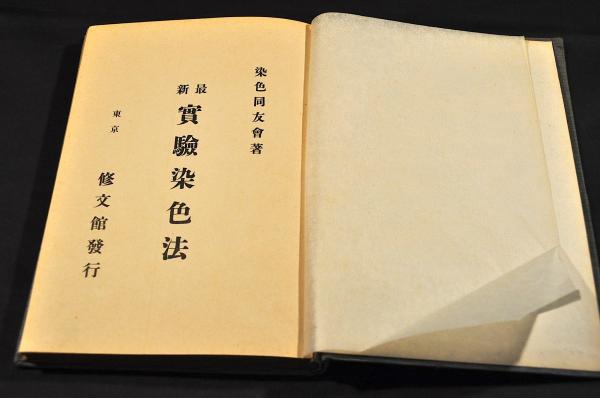 染色同友會著
最新
實驗染色法
東京
修文館發行